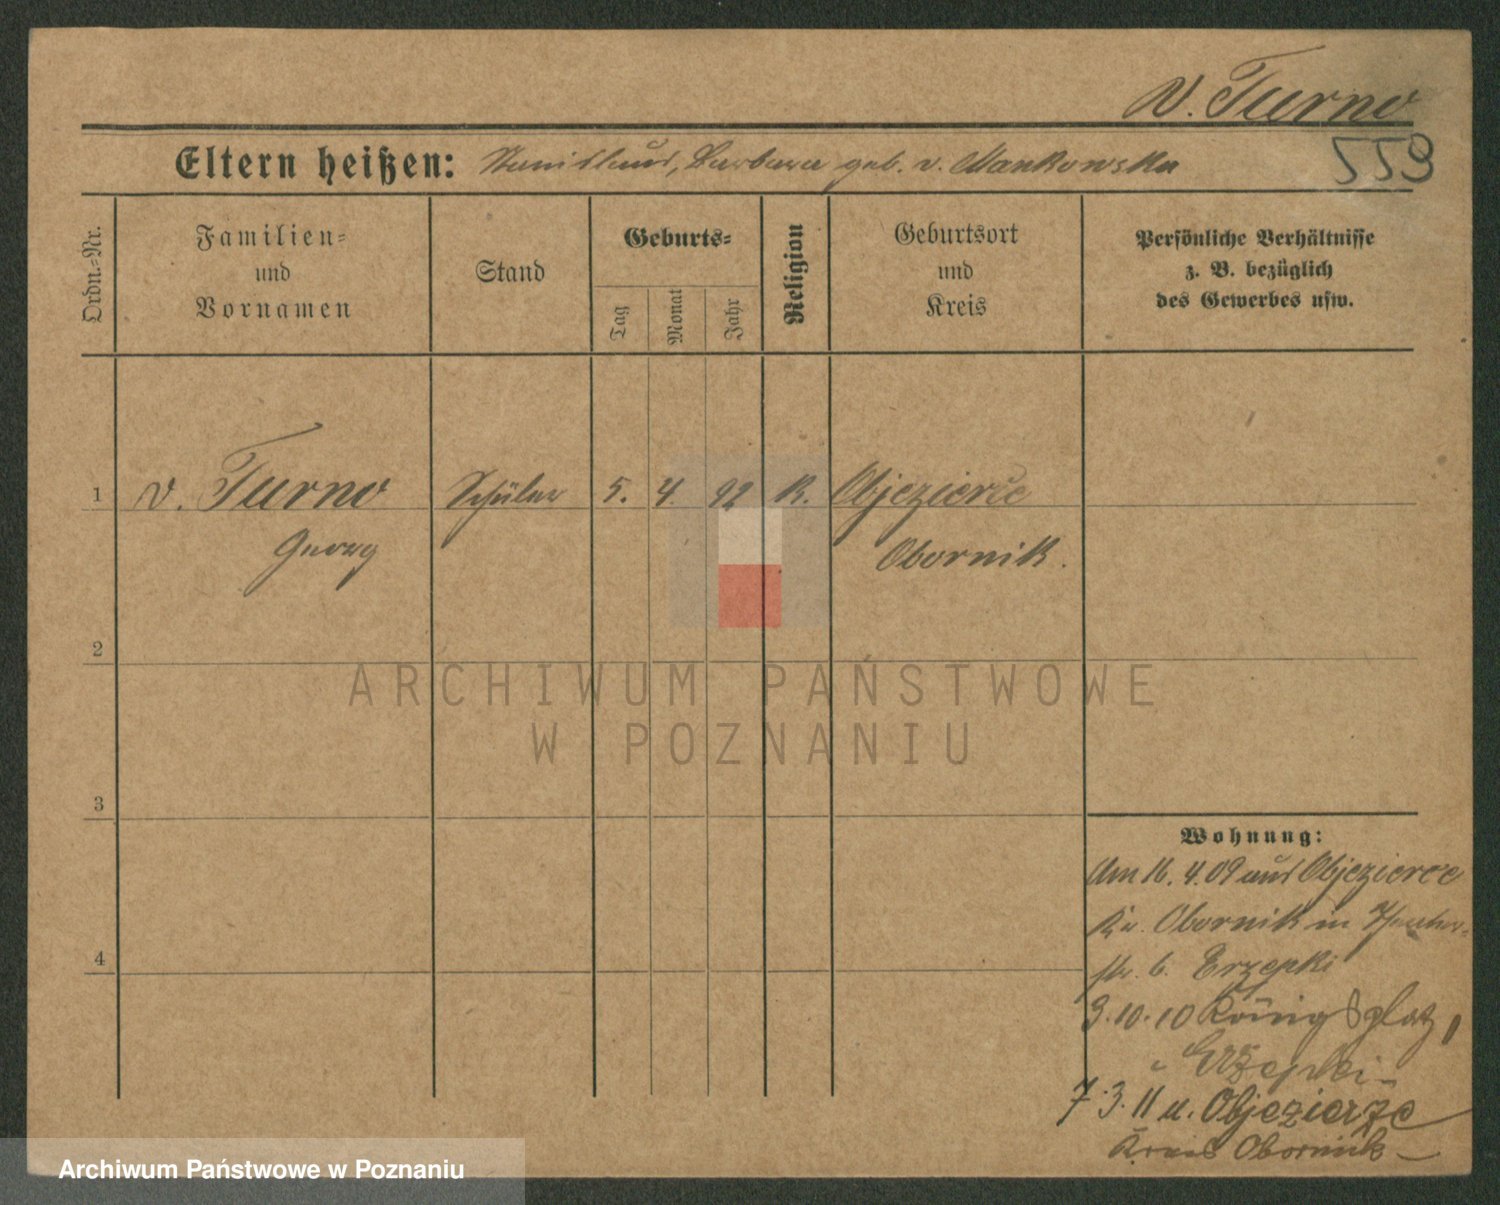 v. Turno
559
Eltern heißen: Stanislaus, Barbara geb. v. Mankowska
Ordn.-Nr.
Familien-
und
Vornamen
Stand
Geburts-
Tag
Monat
Jahr
Religion
Geburtsort
und
Kreis
Persönliche Verhältnisse
z. B. bezüglich
des Gewerbes usw.
1 v. Turno Schüler 5. 4. 92 K. Objezierce
Georg Obornik.
2
ARCHIWUM PAŃSTWOWE
W POZNANIU
3
Wohnung:
Am 16. 4. 09 aus Objezierce
Kr. Obornik in
str. 6. Erzepki
3. 10. 10 Königsplatz 1
Erzepki
7. 3. 11 n. Objezierze
Kreis Obornik
4
Archiwum Państwowe w Poznaniu